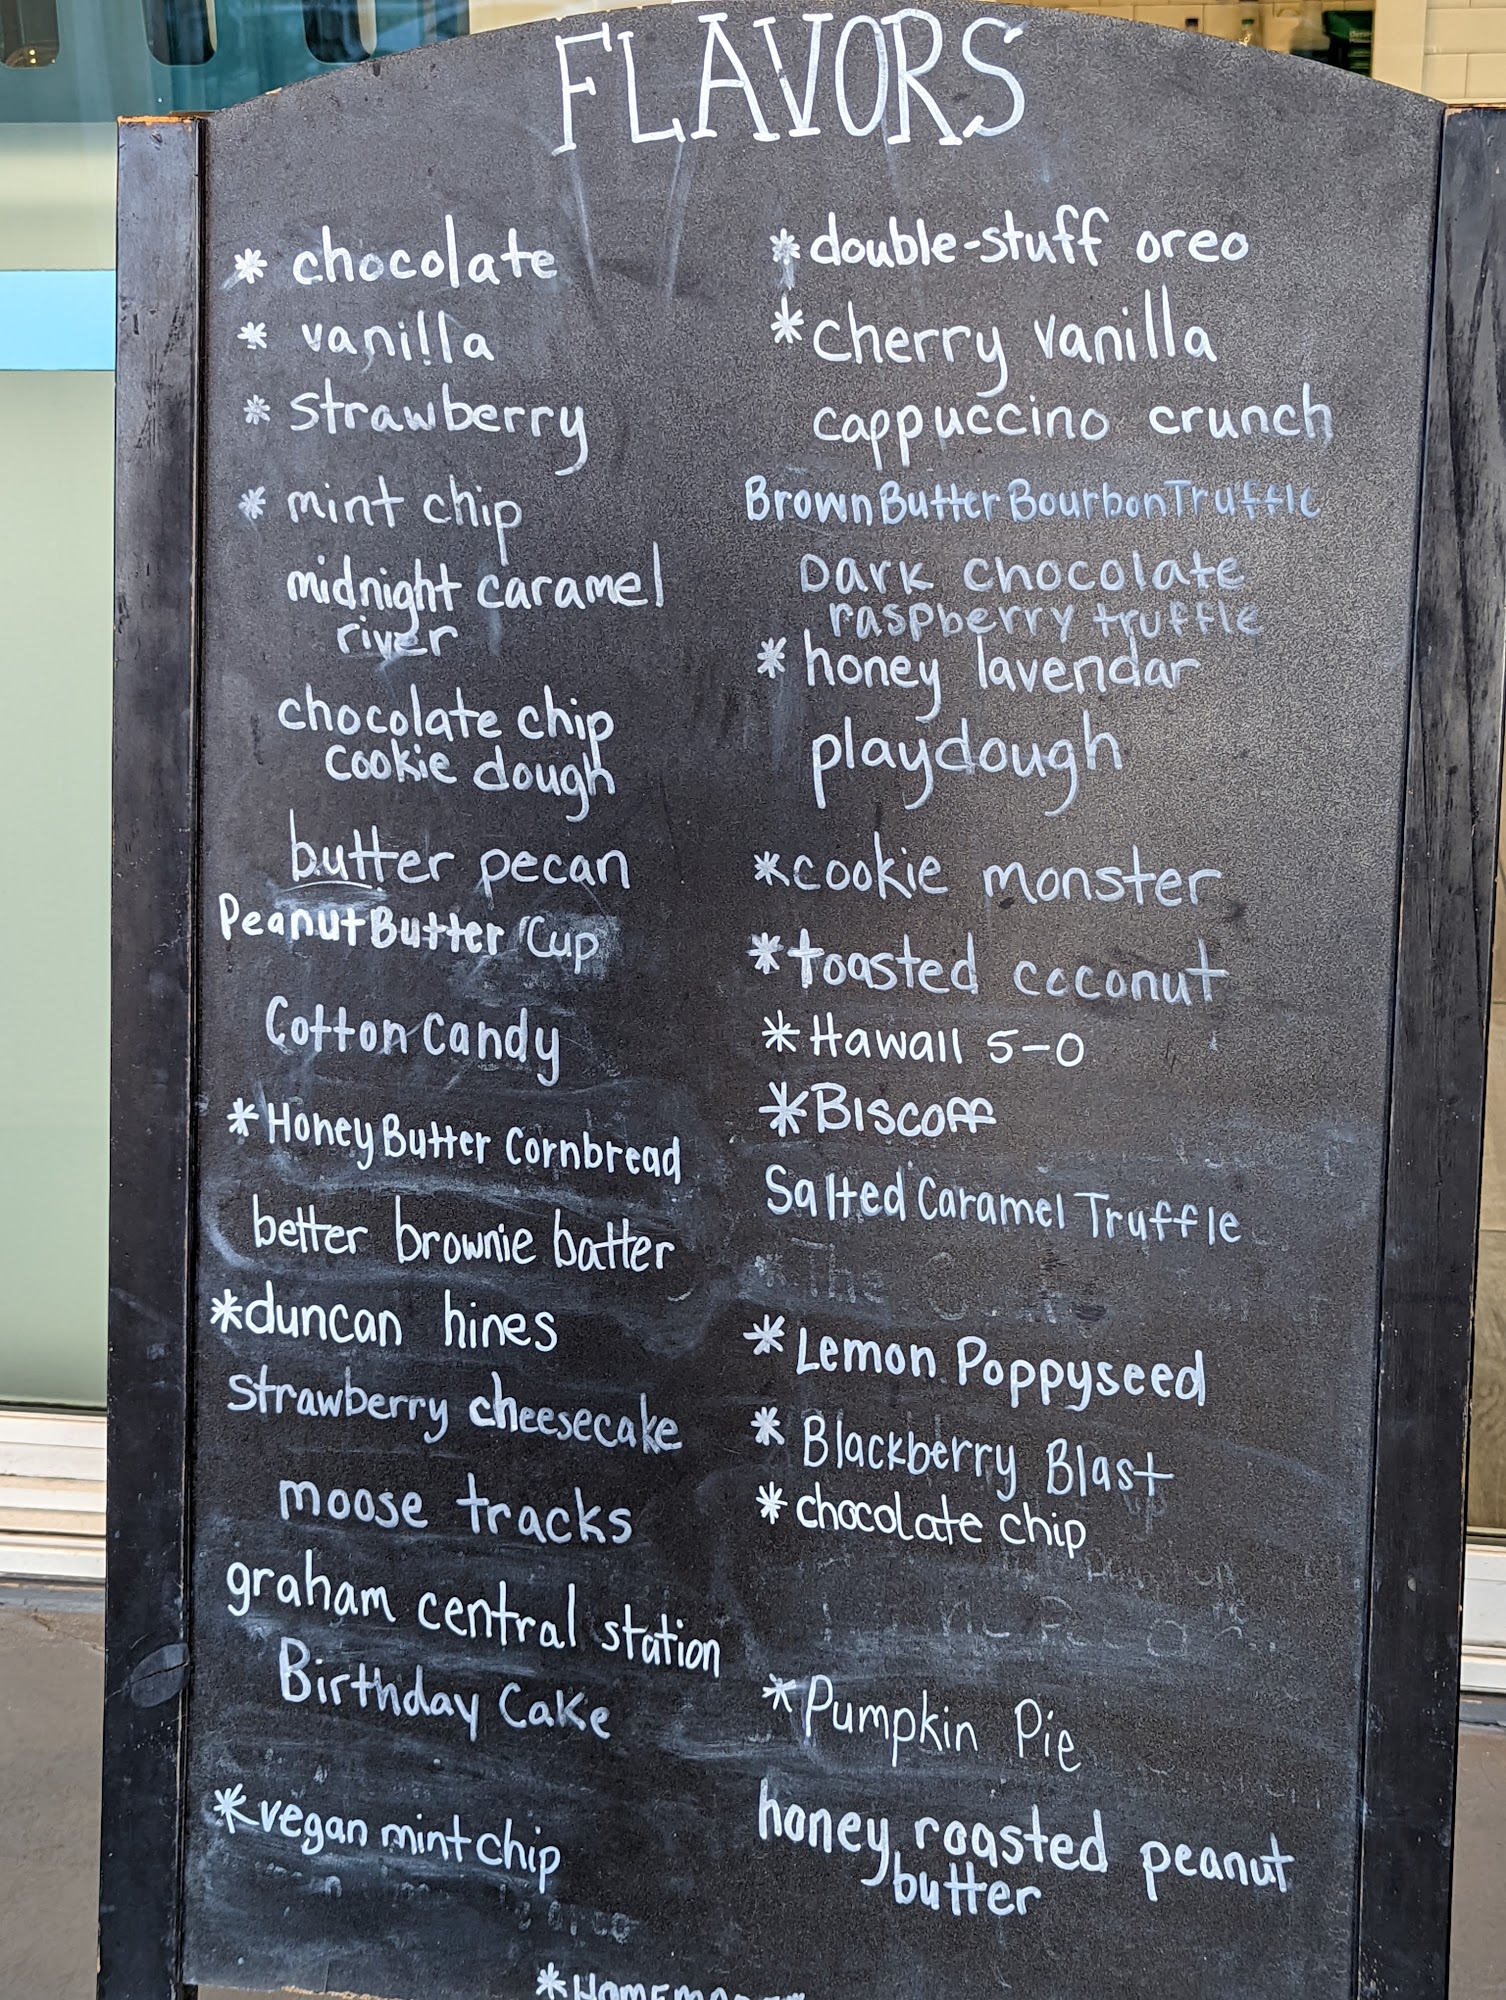 FLAVORS
* chocolate
* vanilla
* strawberry
* mint chip
midnight caramel
river
chocolate chip
cookie dough
butter pecan
Peanut Butter Cup
Cotton Candy
* Honey Butter Cornbread
better brownie batter
*duncan hines
strawberry cheesecake
moose tracks
graham central station
Birthday Cake
*vegan mint chip
* double-stuff oreo
* cherry vanilla
cappuccino crunch
Brown Butter Bourbon Truffle
Dark chocolate
raspberry truffle
* honey lavendar
playdough
*cookie monster
*toasted coconut
*Hawaii 5-0
*Biscoff
Salted Caramel Truffle
* Lemon Poppyseed
* Blackberry Blast
* chocolate chip
*Pumpkin Pie
honey roasted peanut
butter
*HOMEMADE